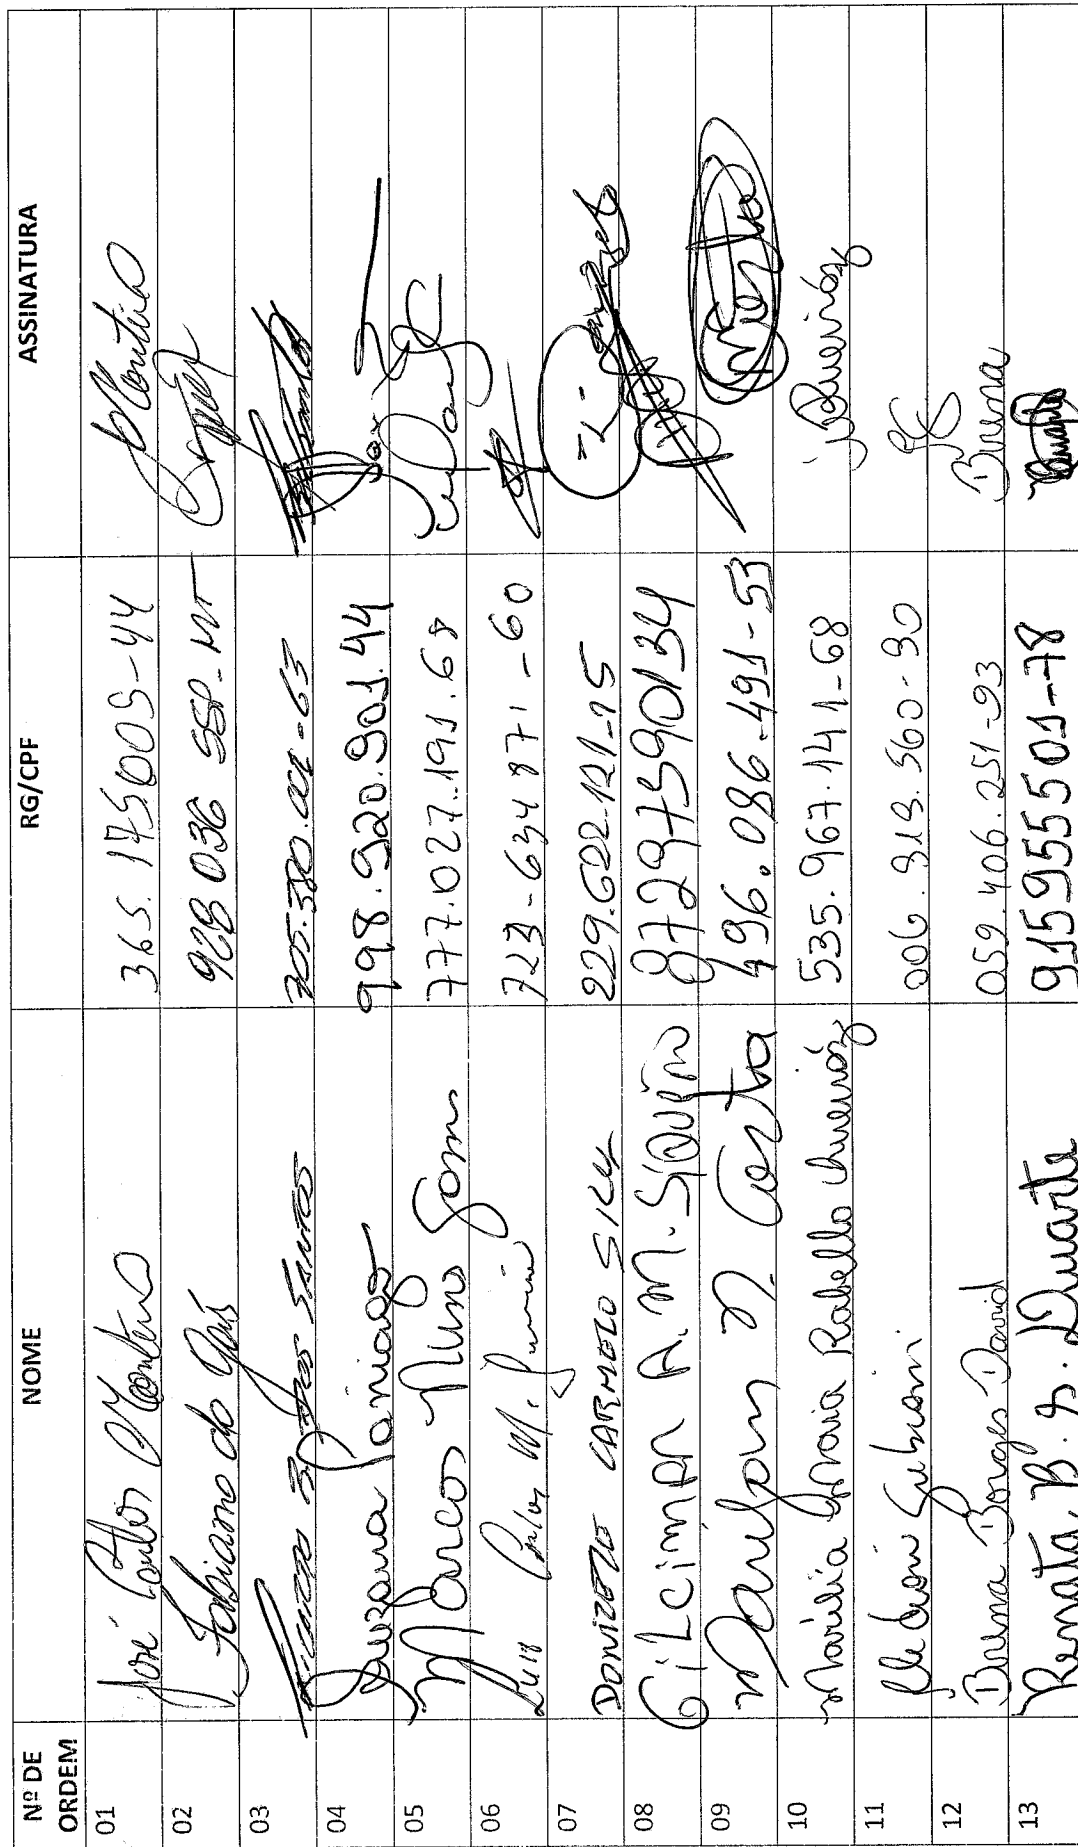 Nº DE ORDEM NOME RG/CPF ASSINATURA
01 José Carlos Monteiro 365.175009-44 Monteiro
02 Fabiano do 928 036 SSP-MT
03 Santos
04 Suzana Januario 998.920.901.44
05 Marcos Nuns Gomes 777.027.191.68
06 Luiz Carlos M. 723-634 871-60
07 DONIZETE CARMELO SILVA 229.622.121-15
08 GiLcimAR A.M. SiQUEiRA 87297590134
09 Marilson N. Costa 496.086.491-53
10 Marília Rabello Queiróz 535.967.141-68 Queiróz
11 006.913.560-30
12 Bruna Borges David 059.406.251-93 Bruna
13 Renata B. S. Duarte 915955501-78